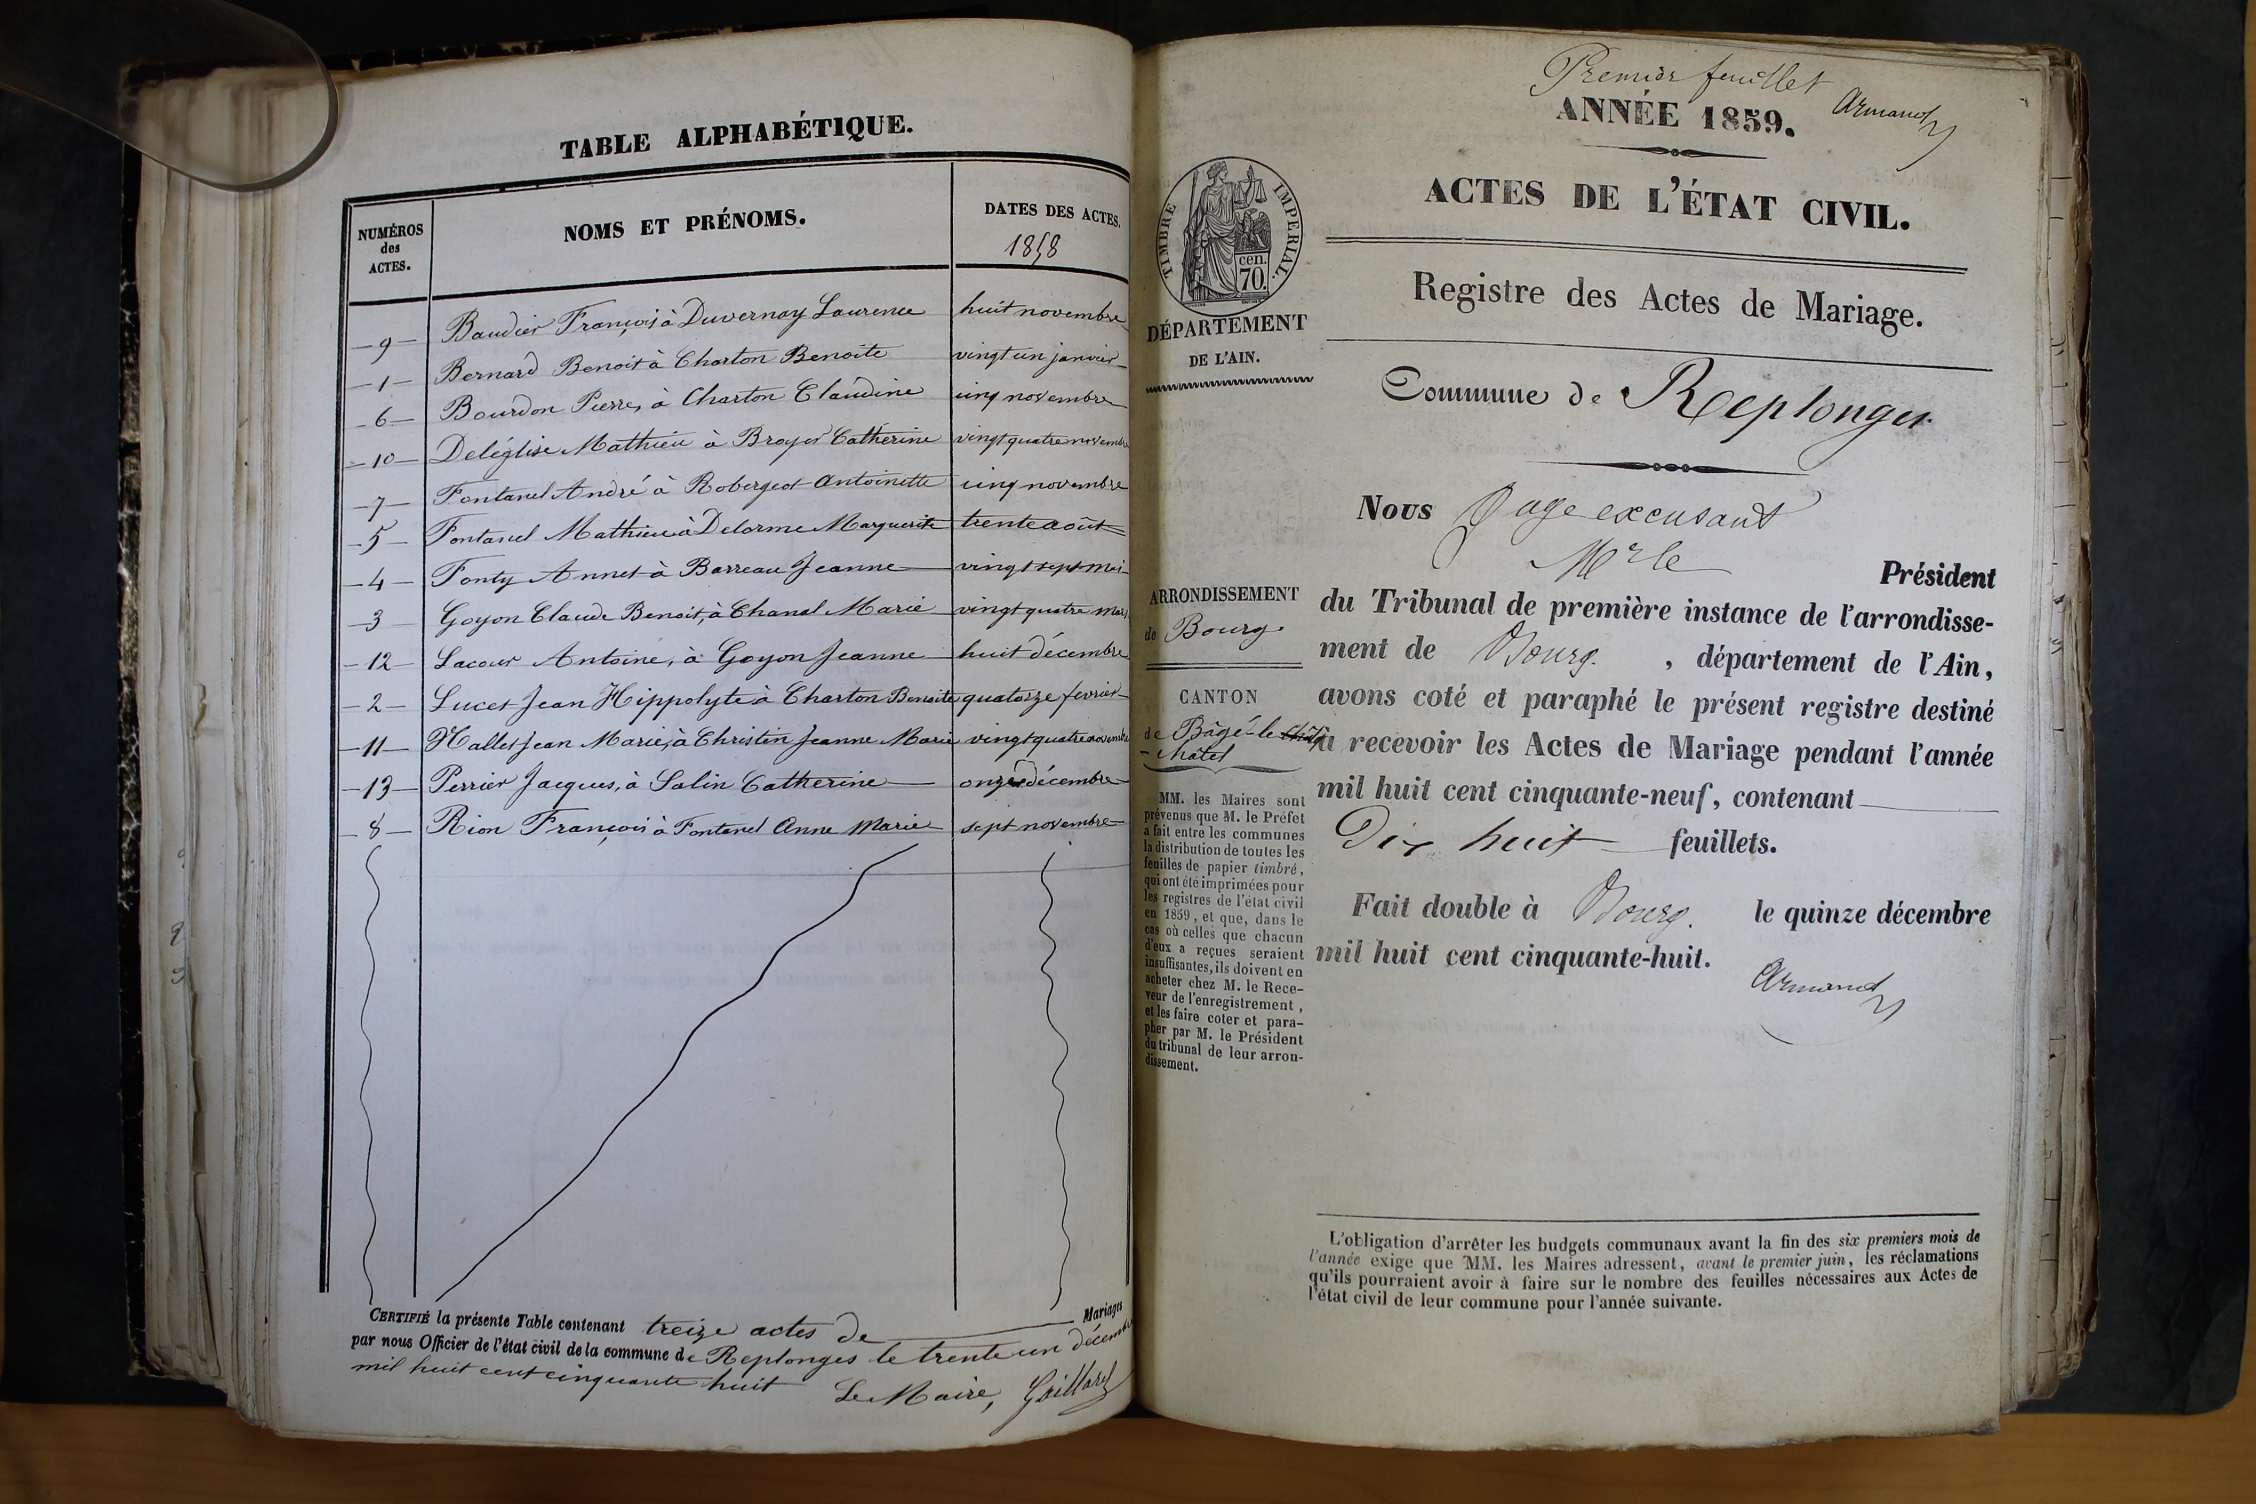 TABLE ALPHABÉTIQUE.
NUMÉROS
des
ACTES.
NOMS ET PRÉNOMS.
DATES DES ACTES.
1858
— 9 — Baudier François à Duvernay Laurence huit novembre
— 1 — Bernard Benoit à Charton Benoite vingt un janvier
— 6 — Bourdon Pierre, à Charton Claudine cinq novembre
— 10 — Deléglise Mathieu à Broyer Catherine vingt quatre novembre
— 7 — Fontanel André à Robergeot Antoinette cinq novembre
— 5 — Fontanel Mathieu à Delorme Marguerite trente août
— 4 — Fonty Annet à Barreau Jeanne vingt sept mai
— 3 — Goyon Claude Benoit, à Chanal Marie vingt quatre mars
— 12 — Lacour Antoine, à Goyon Jeanne huit décembre
— 2 — Lucet Jean Hippolyte à Charton Benoite quatorze fevrier
— 11 — Hallet Jean Marie, à Christin Jeanne Marie vingt quatre novembre
— 13 — Perrier Jacques, à Salin Catherine onze décembre
— 8 — Rion François à Fontanel Anne Marie sept novembre
CERTIFIÉ la présente Table contenant treize actes de Mariages
par nous Officier de l'état civil de la commune de Replonges le trente un décembre
mil huit cent cinquante huit Le Maire, Gaillard
Premier feuillet
Armand
ANNÉE 1859.
ACTES DE L'ÉTAT CIVIL.
Registre des Actes de Mariage.
Commune de Replonges
TIMBRE IMPERIAL.
cen.
70.
DÉPARTEMENT
DE L'AIN.
ARRONDISSEMENT
de Bourg
CANTON
de Bâgé-le
-châtel
MM. les Maires sont
prévenus que M. le Préfet
a fait entre les communes
la distribution de toutes les
feuilles de papier timbré,
qui ont été imprimées pour
les registres de l'état civil
en 1859, et que, dans le
cas où celles que chacun
d'eux a reçues seraient
insuffisantes, ils doivent en
acheter chez M. le Rece-
veur de l'enregistrement,
et les faire coter et para-
pher par M. le Président
du tribunal de leur arron-
dissement.
Nous Juge excusant
Mr le Président
du Tribunal de première instance de l'arrondisse-
ment de Bourg. , département de l'Ain,
avons coté et paraphé le présent registre destiné
à recevoir les Actes de Mariage pendant l'année
mil huit cent cinquante-neuf, contenant
Dix huit feuillets.
Fait double à Bourg. le quinze décembre
mil huit cent cinquante-huit.
Armand
L'obligation d'arrêter les budgets communaux avant la fin des six premiers mois de
l'année exige que MM. les Maires adressent, avant le premier juin, les réclamations
qu'ils pourraient avoir à faire sur le nombre des feuilles nécessaires aux Actes de
l'état civil de leur commune pour l'année suivante.